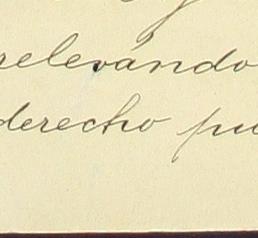 relevándo
derecho pu